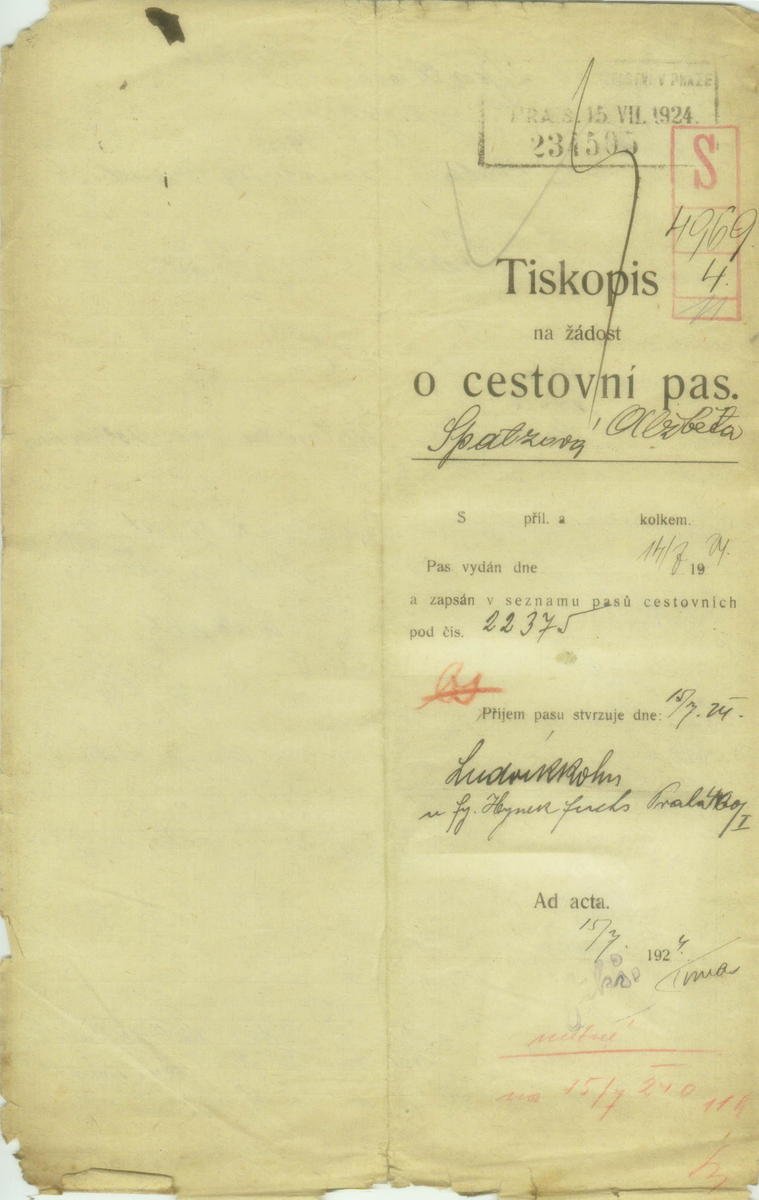 V PRAZE
15. VII. 1924.
234505
S
4969
4.
11
Tiskopis
na žádost
o cestovní pas.
Spatzová Alžběta
S příl. a kolkem.
Pas vydán dne 14/7 1924.
a zapsán v seznamu pasů cestovních
pod čís. 22375
Příjem pasu stvrzuje dne: 15/7. 24.
Ludvík Kohn
u fy. Hynek Fuchs Praha
Ad acta.
15/7. 1924.
nutné
na 15/7 24 o 11 h